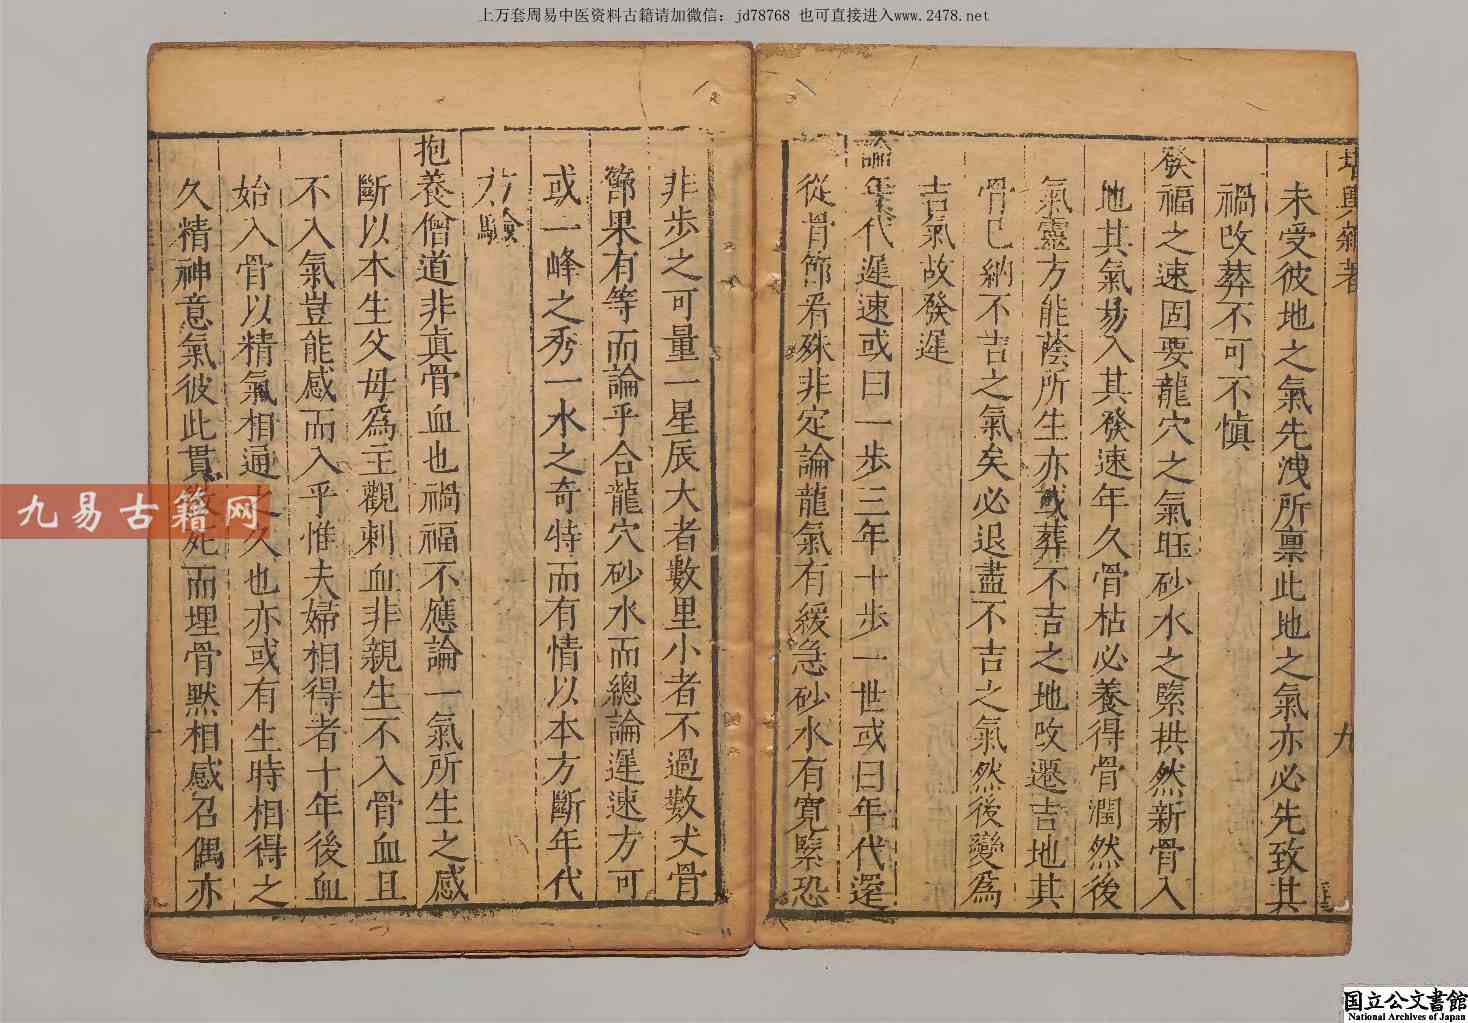 上万套周易中医资料古籍请加微信：jd78768 也可直接进入www.2478.net
堪輿雜著
九
未受彼地之氣先洩所禀此地之氣亦必先致其
禍改葬不可不慎
發福之速固要龍穴之氣旺砂水之緊拱然新骨入
地其氣易入其發速年久骨枯必養得骨潤然後
氣靈方能蔭所生亦或葬不吉之地改遷吉地其
骨已納不吉之氣矣必退盡不吉之氣然後變爲
吉氣故發遲
論年代遲速或曰一歩三年十歩一世或曰年代還
從骨節看殊非定論龍氣有緩急砂水有寛緊恐
非歩之可量一星辰大者數里小者不過數丈骨
節果有等而論乎合龍穴砂水而總論遲速方可
或一峰之秀一水之奇特而有情以本方斷年代
方驗
抱養僧道非眞骨血也禍福不應論一氣所生之感
斷以本生父母爲主觀刺血非親生不入骨血且
不入氣豈能感而入乎惟夫婦相得者十年後血
始入骨以精氣相通之久也亦或有生時相得之
久精神意氣彼此貫死而埋骨黙相感召偶亦
九易古籍网
国立公文書館
National Archives of Japan